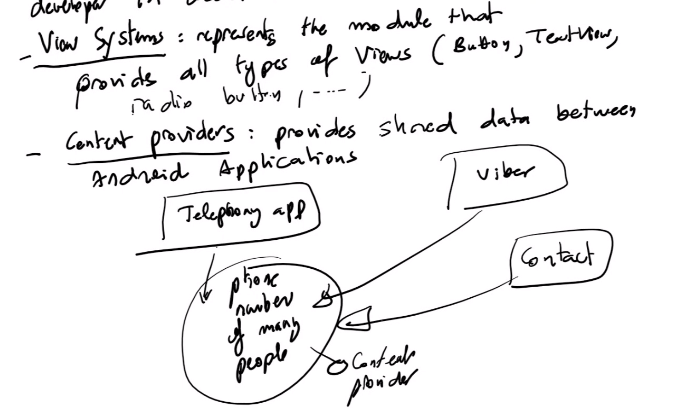 developer in
- View Systems : represents the module that
provids all types of Views ( Button, TextView,
radio button , ---- )
- Content providers : provides shared data between
Android Applications
Telephony app
Viber
Contact
phone
number
of many
people
Content
provider